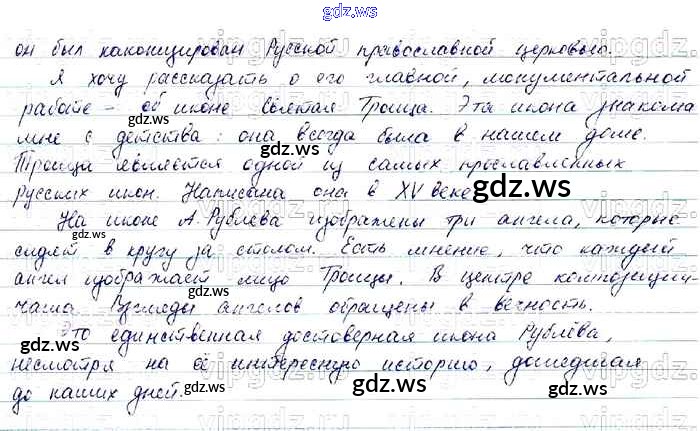 gdz.ws
он был канонизирован Русской православной церковью.
Я хочу рассказать о его главной, монументальной
работе – об иконе Святая Троица. Эта икона знакома
мне с детства: она всегда была в нашем доме.
Троица является одной из самых прославленных
русских икон. Написана она в XV веке gdz.ws
На иконе А. Рублёва изображены три ангела, которые
сидят в кругу за столом. Есть мнение, что каждый
ангел изображает лицо Троицы. В центре композиции
чаша. Взгляды ангелов обращены в вечность.
gdz.ws gdz.ws
Это единственная достоверная икона Рублёва,
несмотря на её интересную историю, дошедшая
до наших дней.
gdz.ws gdz.ws